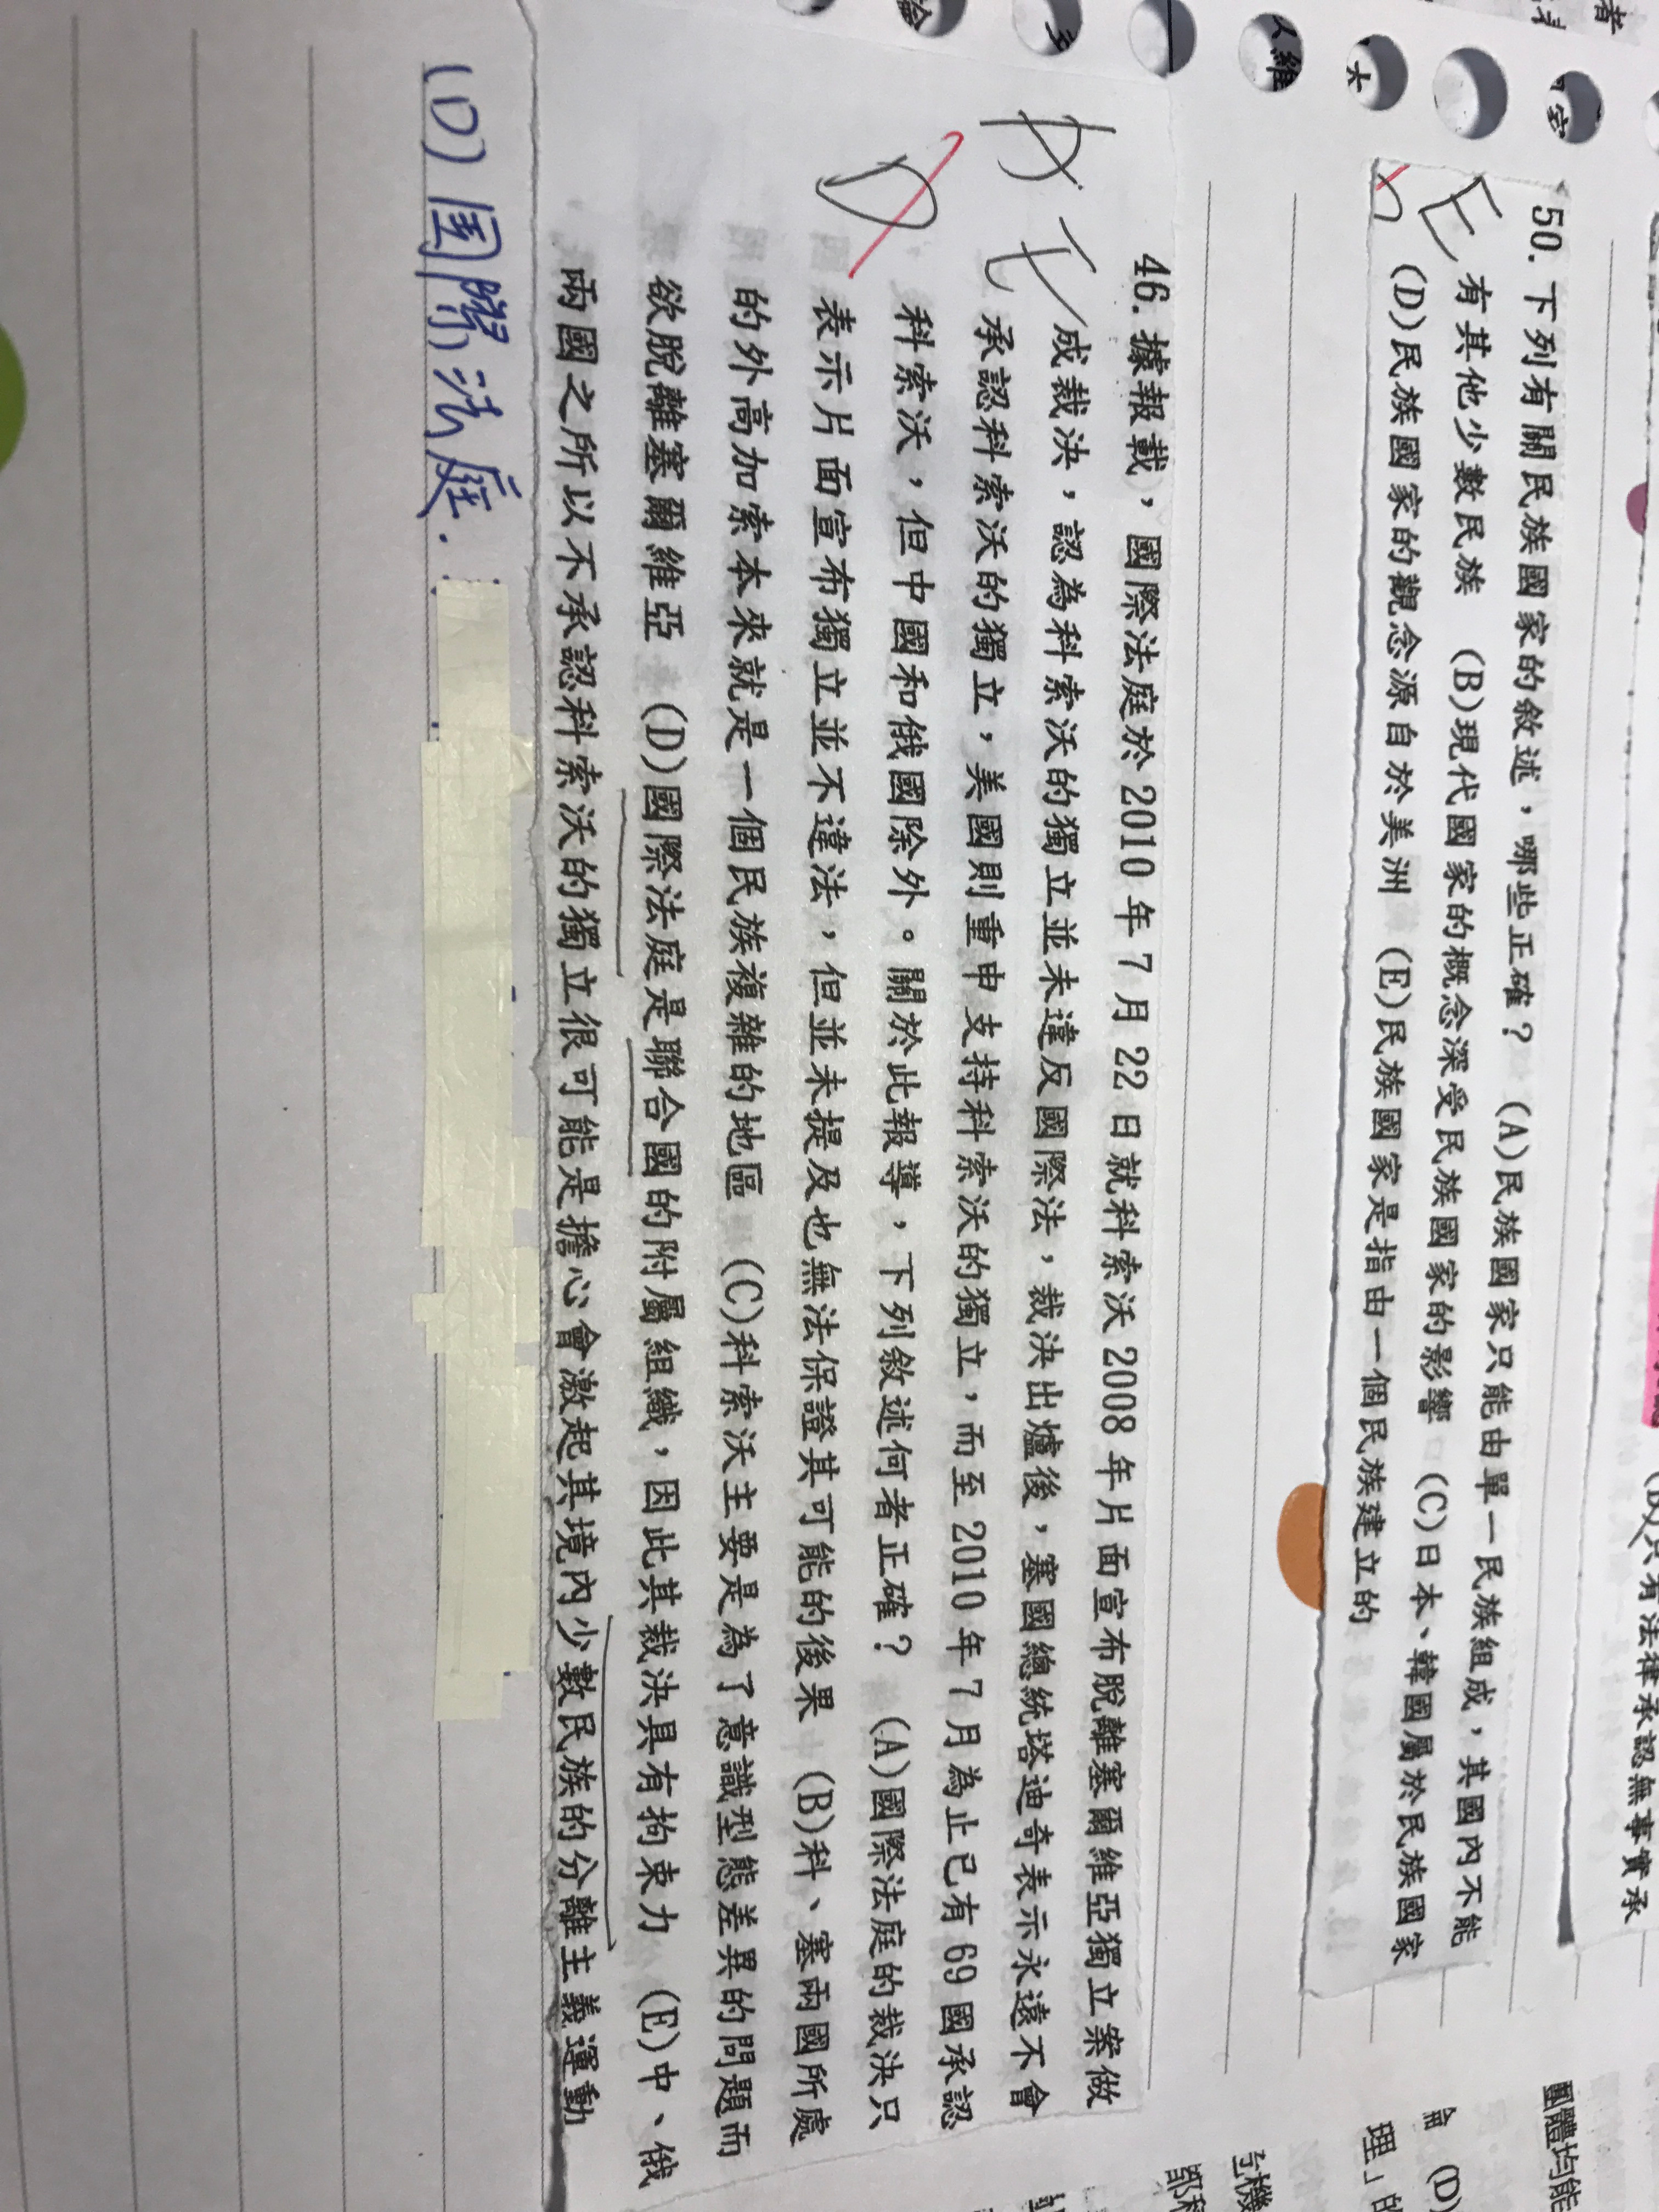 50. 下列有關民族國家的敘述，哪些正確？ (A)民族國家只能由單一民族組成，其國內不能
有其他少數民族 (B)現代國家的概念深受民族國家的影響 (C)日本、韓國屬於民族國家
(D)民族國家的觀念源自於美洲 (E)民族國家是指由一個民族建立的
46. 據報載，國際法庭於2010年7月22日就科索沃2008年片面宣布脫離塞爾維亞獨立案做
成裁決，認為科索沃的獨立並未違反國際法，裁決出爐後，塞國總統塔迪奇表示永遠不會
承認科索沃的獨立，美國則重申支持科索沃的獨立，而至2010年7月為止已有69國承認
科索沃，但中國和俄國除外。關於此報導，下列敘述何者正確？ (A)國際法庭的裁決只
表示片面宣布獨立並不違法，但並未提及也無法保證其可能的後果 (B)科、塞兩國所處
的外高加索本來就是一個民族複雜的地區 (C)科索沃主要是為了意識型態差異的問題而
欲脫離塞爾維亞 (D)國際法庭是聯合國的附屬組織，因此其裁決具有拘束力 (E)中、俄
兩國之所以不承認科索沃的獨立很可能是擔心會激起其境內少數民族的分離主義運動
(D) 国際法庭.
只有法律承認無事實承
團體均能
(D)
理」的
維
大
論
多
者